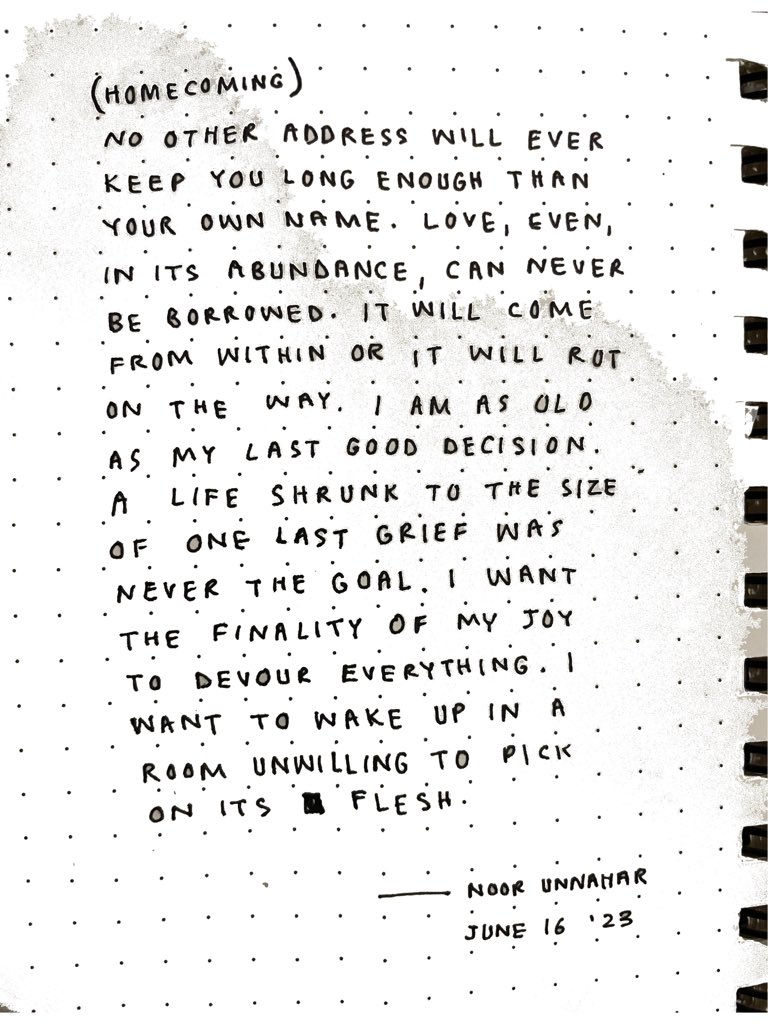 (HOMECOMING)
NO OTHER ADDRESS WILL EVER
KEEP YOU LONG ENOUGH THAN
YOUR OWN NAME. LOVE, EVEN,
IN ITS ABUNDANCE, CAN NEVER
BE BORROWED. IT WILL COME
FROM WITHIN OR IT WILL ROT
ON THE WAY. I AM AS OLD
AS MY LAST GOOD DECISION.
A LIFE SHRUNK TO THE SIZE
OF ONE LAST GRIEF WAS
NEVER THE GOAL. I WANT
THE FINALITY OF MY JOY
TO DEVOUR EVERYTHING. I
WANT TO WAKE UP IN A
ROOM UNWILLING TO PICK
ON ITS FLESH.
—— NOOR UNNAHAR
JUNE 16 '23